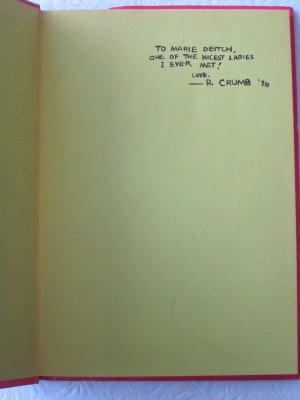 TO MARIE DEITCH,
ONE OF THE NICEST LADIES
I EVER MET!
LOVE,
— R. CRUMB '78